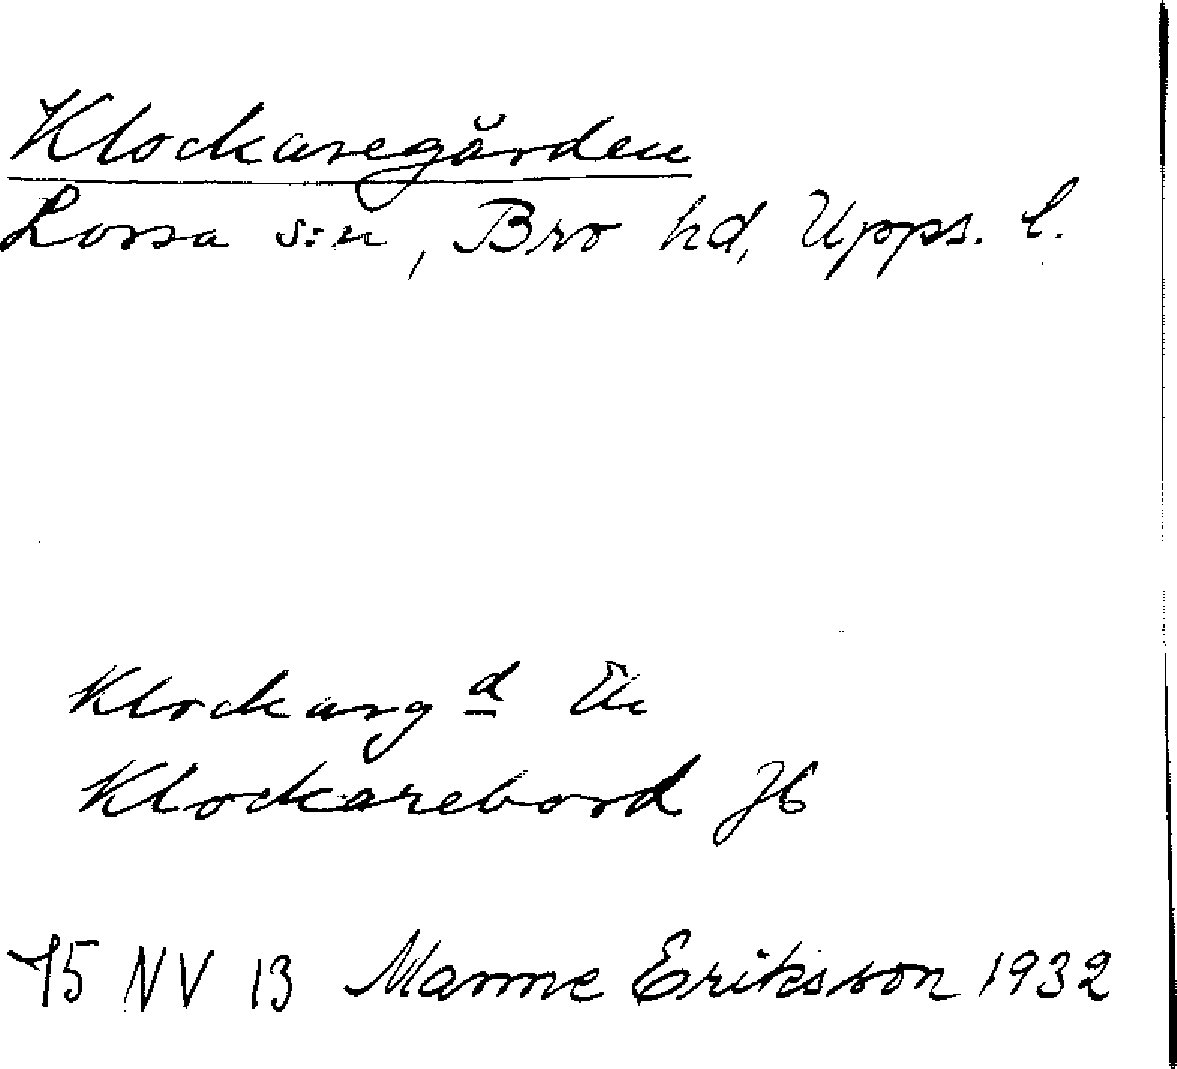 Klockaregården
Lossa s:n, Bro hd, Upps. l.
Klockarg d Ek
Klockarebord JB
75 NV 13 Manne Eriksson 1932